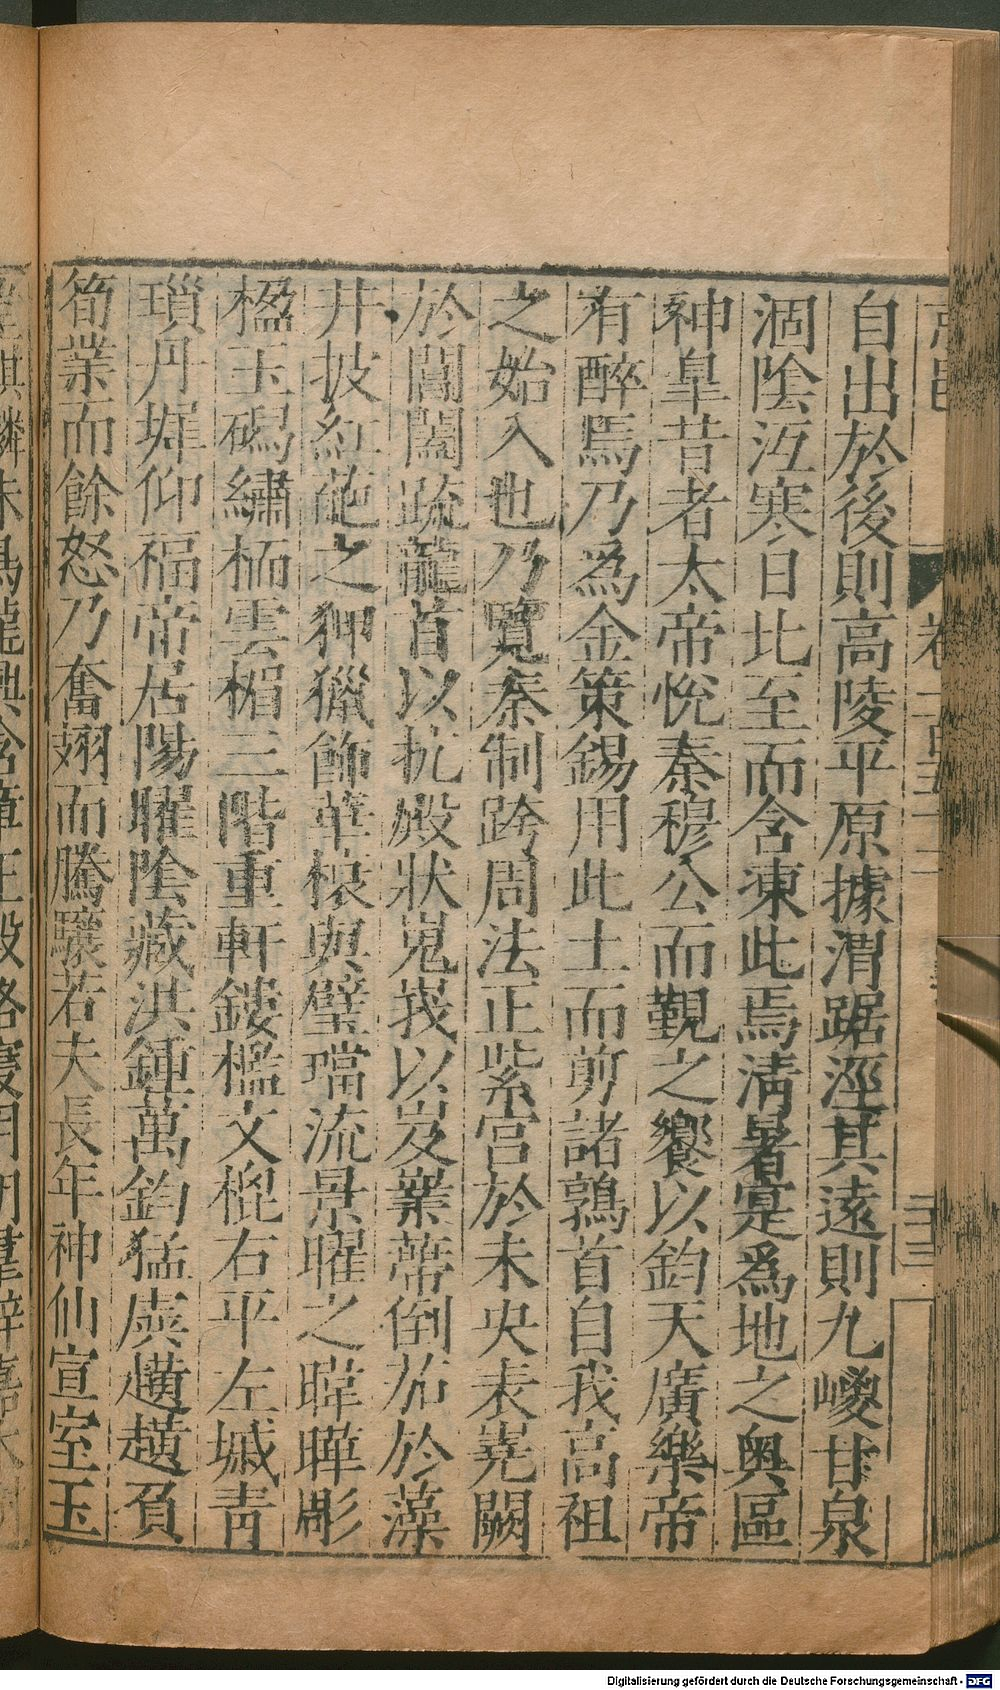 自出於後則高陵平原據渭踞涇其遠則九嵕甘泉
涸陰沍寒日北至而含凍此焉淸暑寔爲地之奥區
神皐昔者太帝悅秦穆公而覲之饗以鈞天廣樂帝
有醉焉乃爲金策錫用此土而剪諸鶉首自我高祖
之始入也乃覽秦制跨周法正紫宮於未央表嶤闕
於閶闔疏龍首以抗殿狀嵬峩以岌嶪蔕倒茄於藻
井披紅葩之狎獵飾華榱與璧璫流景曜之暐曄彫
楹玉磶繡栭雲楣三階重軒鏤檻文㮰右平左墄靑
瑣丹墀仰福帝居陽曜陰藏洪鍾萬鈞猛虡趪趪負
筍業而餘怒乃奮翅而騰驤若夫長年神仙宣室玉
卷一百三十二
二十三
Digitalisierung gefördert durch die Deutsche Forschungsgemeinschaft - DFG